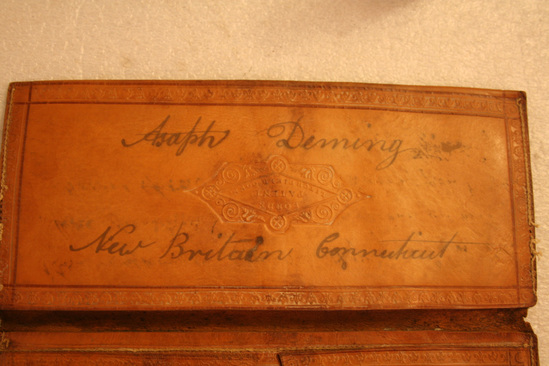 Asaph Deming
New Britain Connecticut